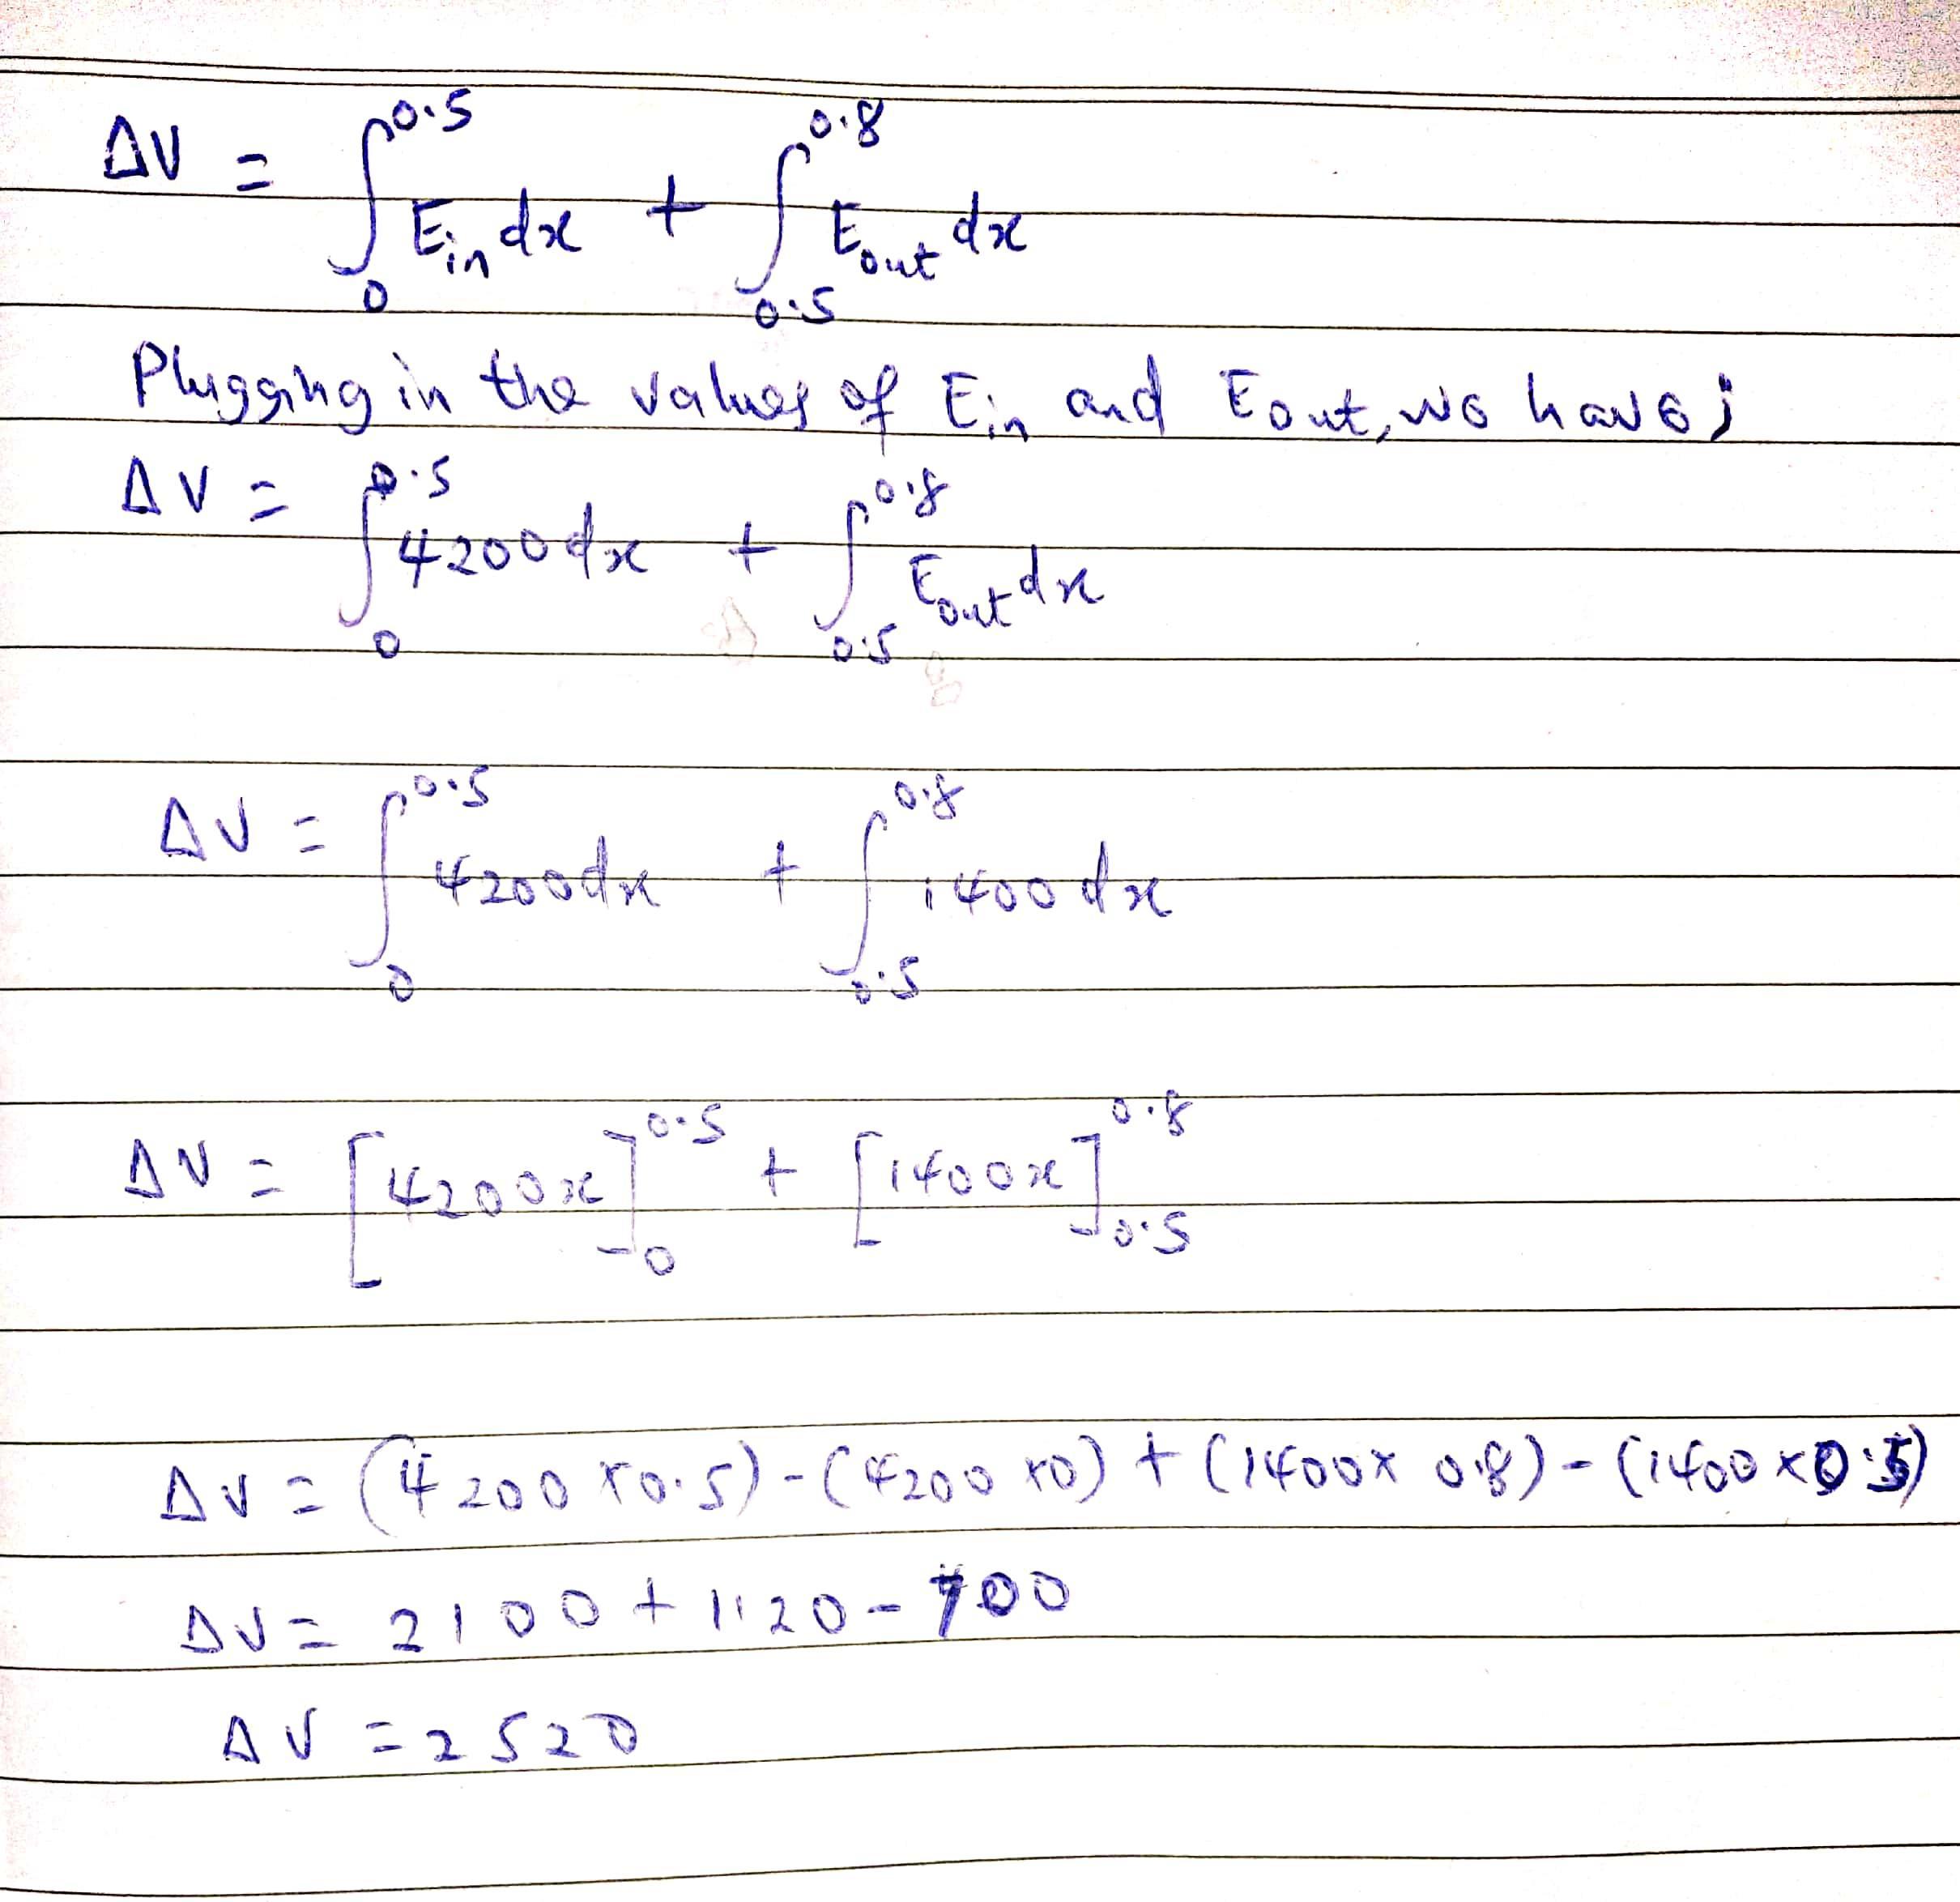 ΔV = ∫₀^0.5 E_in dx + ∫_0.5^0.8 E_out dx
Plugging in the values of E_in and Eout, we have;
ΔV = ∫₀^0.5 4200dx + ∫_0.5^0.8 E_out dx
ΔV = ∫₀^0.5 4200dx + ∫_0.5^0.8 1400dx
ΔV = [4200x]₀^0.5 + [1400x]_0.5^0.8
ΔV = (4200×0.5)-(4200×0)+(1400×0.8)-(1400×0.5)
ΔV = 2100+1120-700
ΔV = 2520